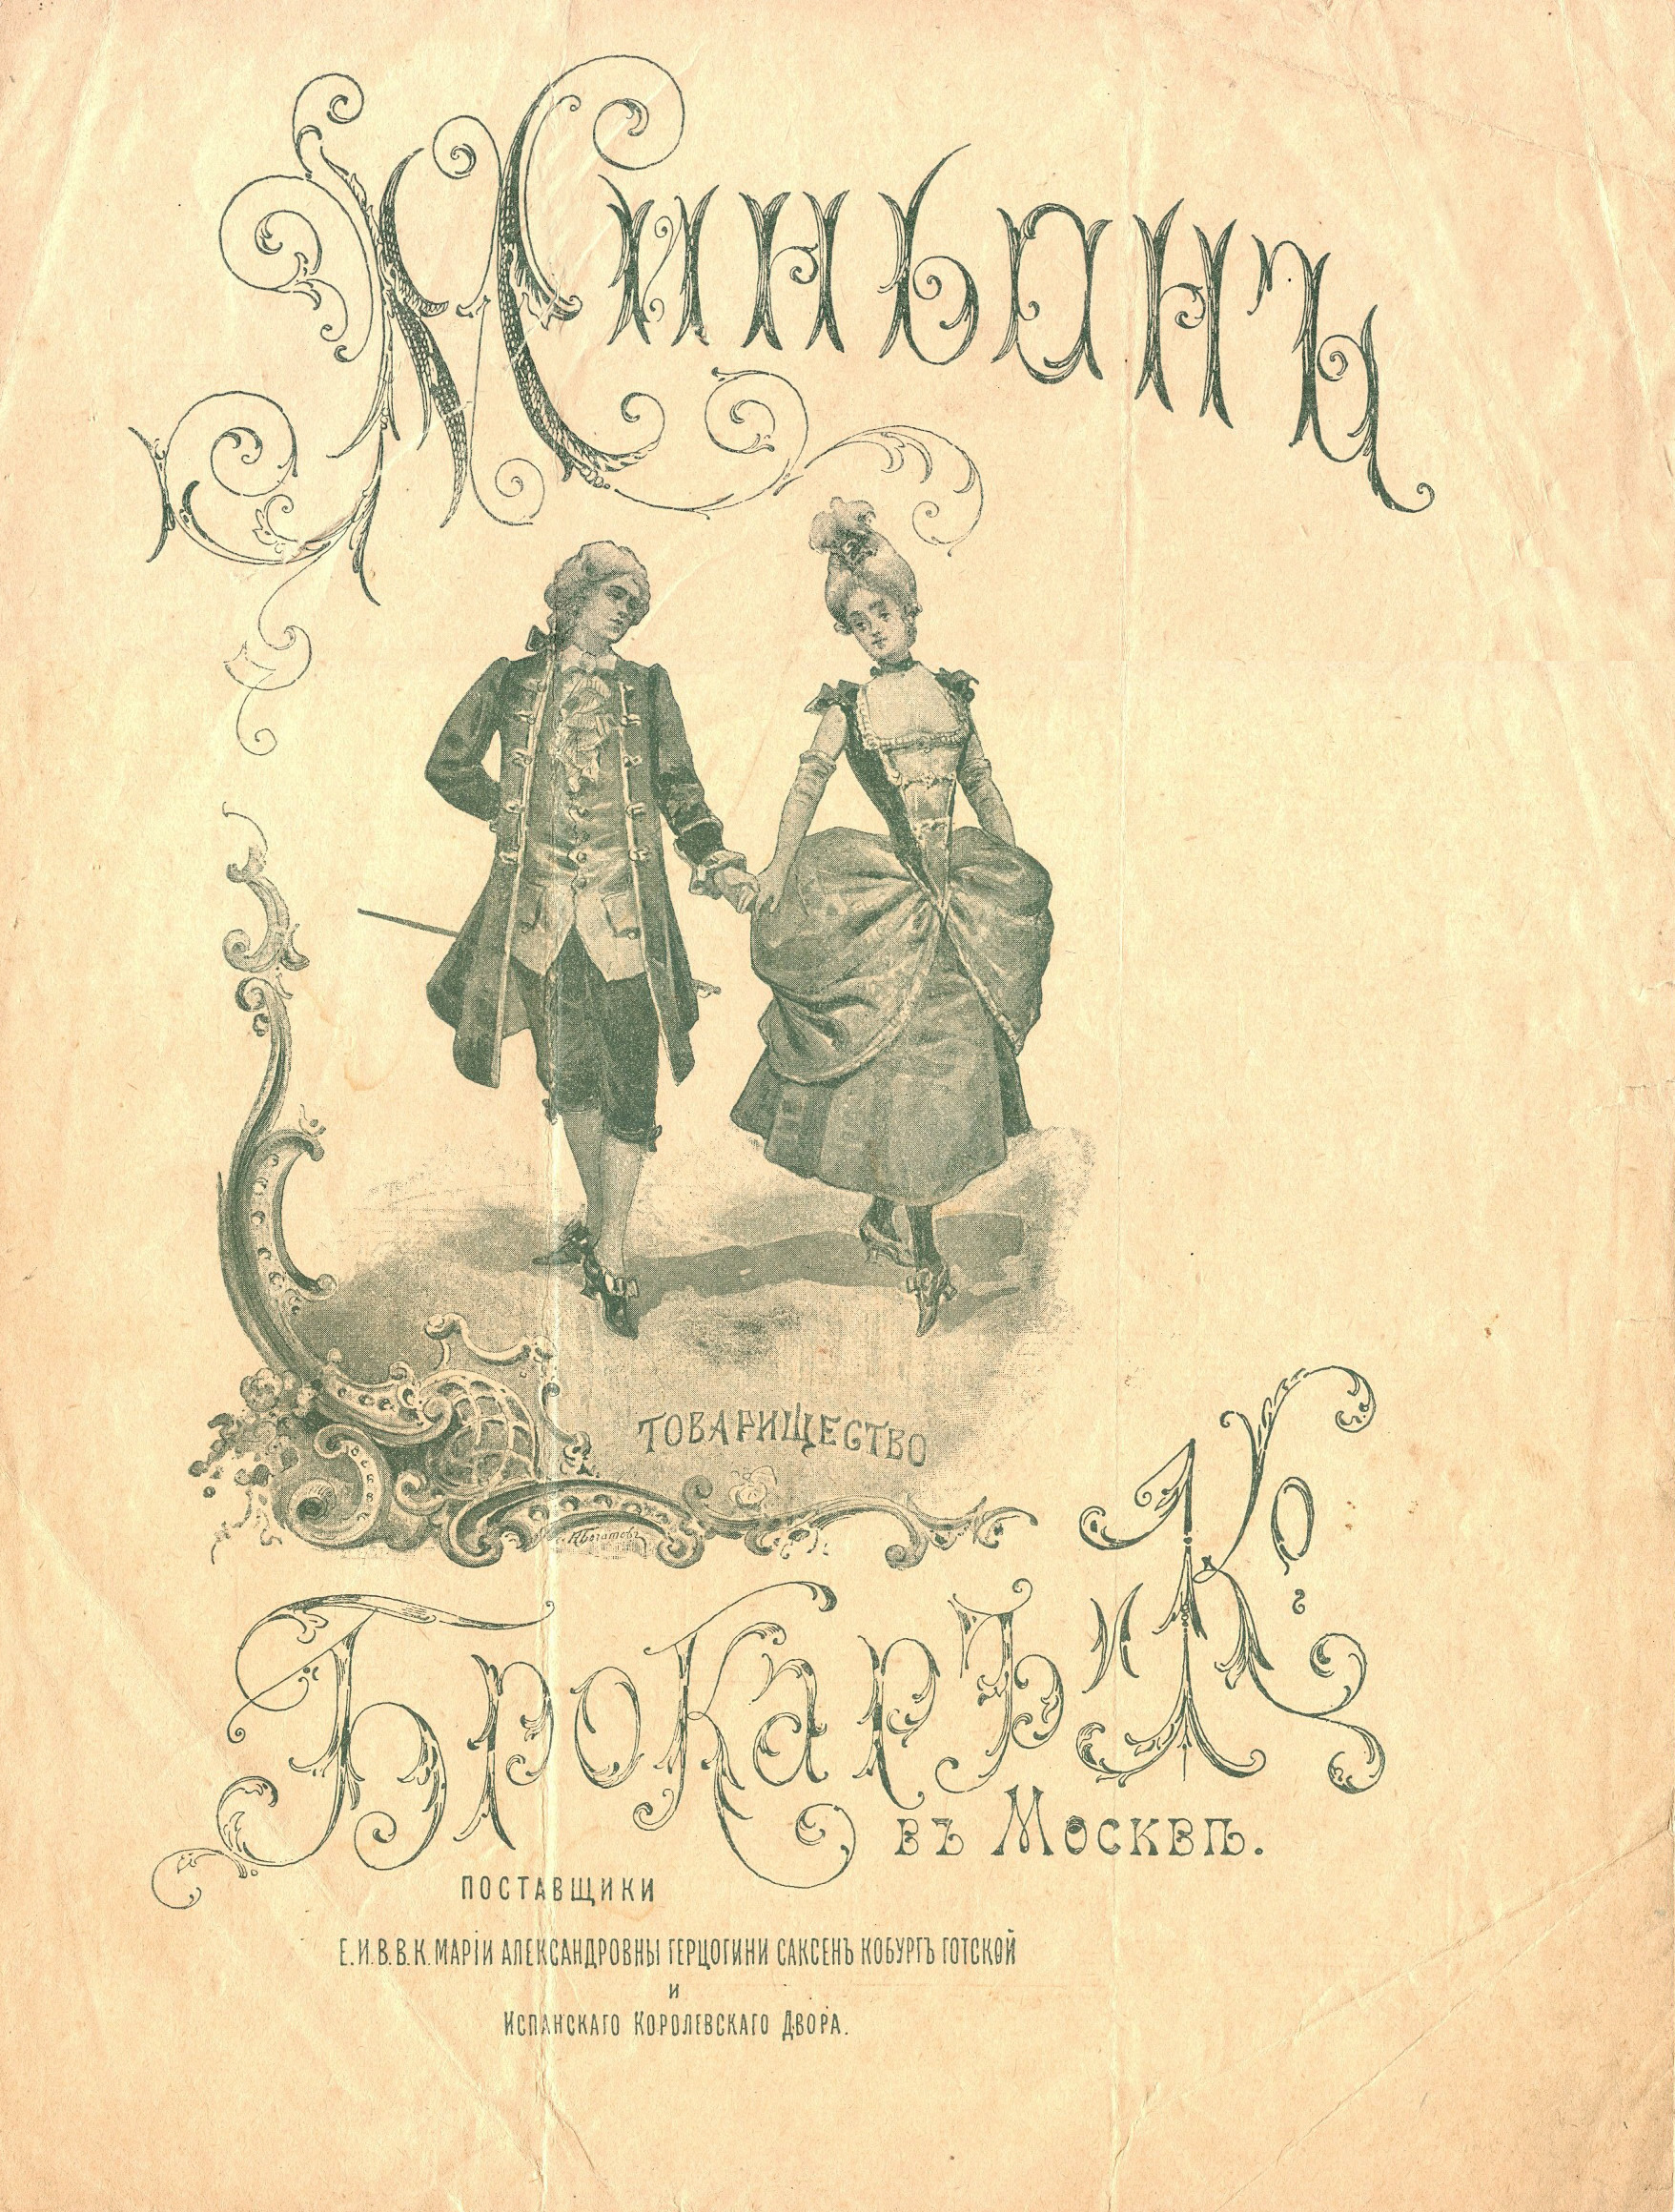 Миньонъ
ТОВАРИЩЕСТВО
Н.Богатовъ
Брокаръ и К°
въ Москвѣ.
ПОСТАВЩИКИ
Е.И.В.В.К. МАРІИ АЛЕКСАНДРОВНЫ ГЕРЦОГИНИ САКСЕНЪ КОБУРГЪ ГОТСКОЙ
И
ИСПАНСКАГО КОРОЛЕВСКАГО ДВОРА.